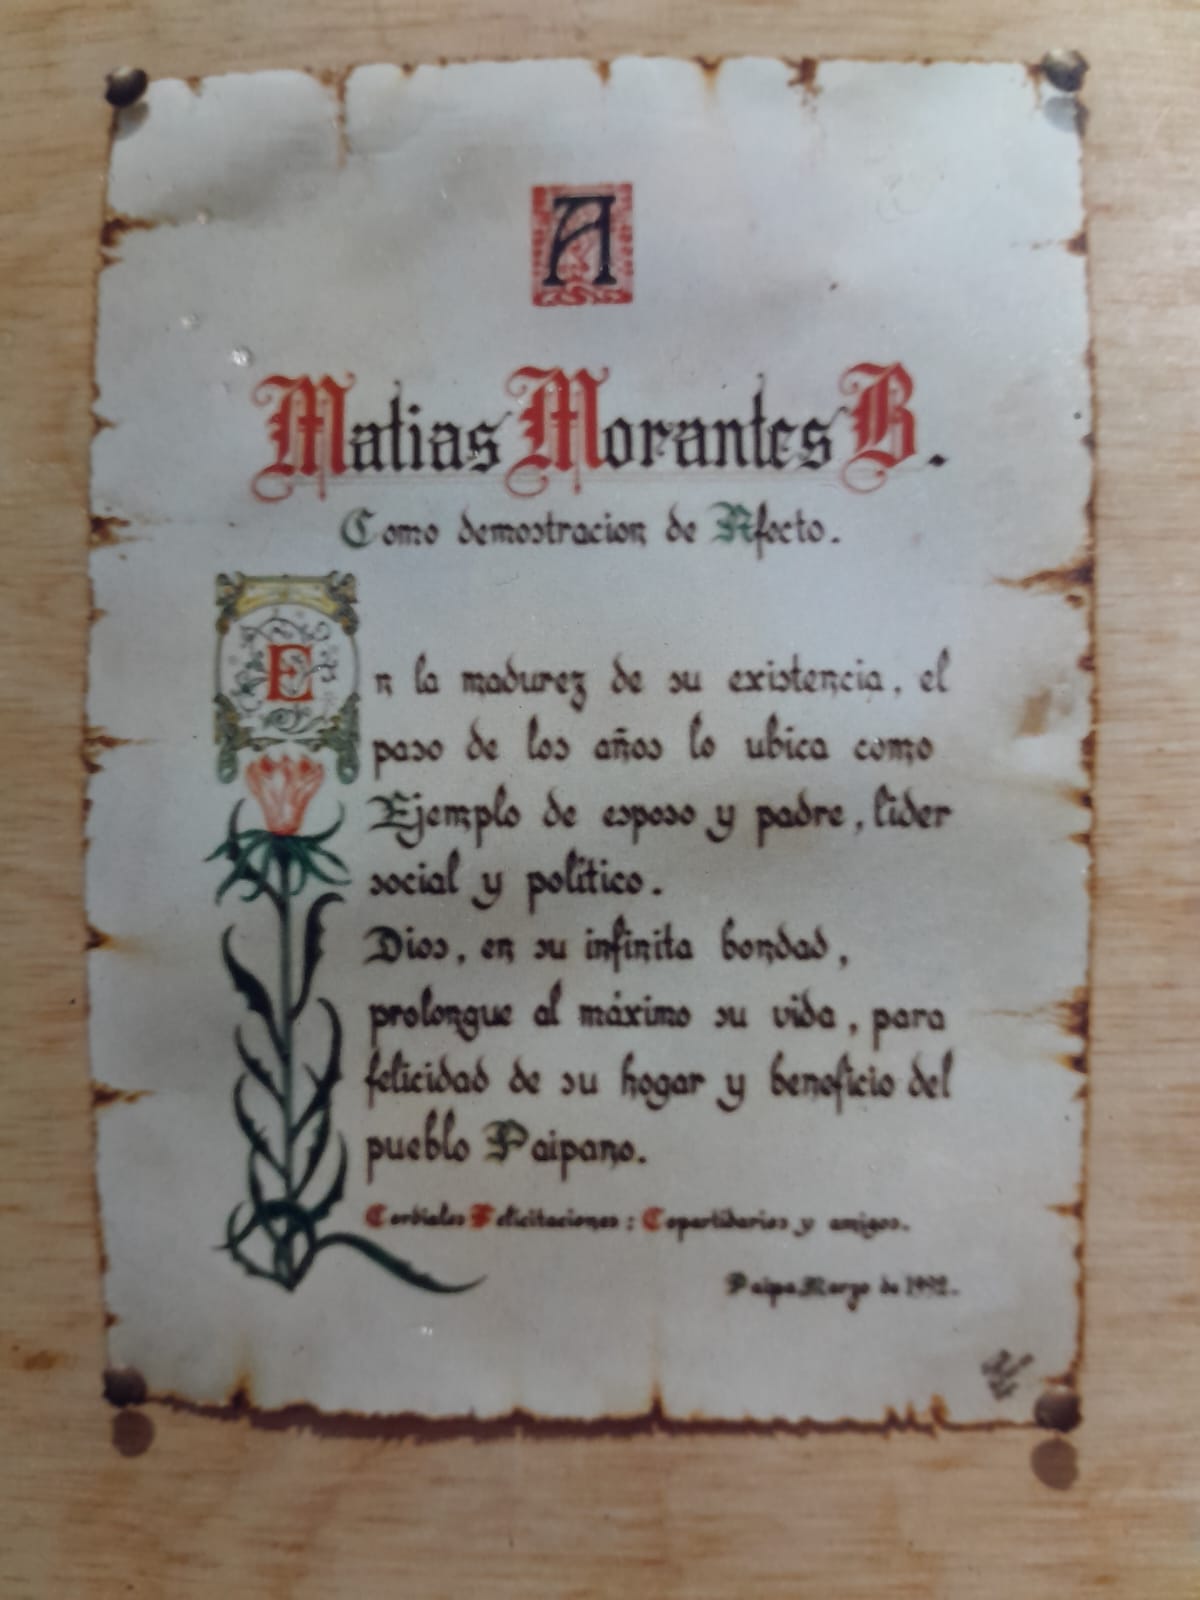 A
Matias Morantes B.
Como demostracion de Afecto.
En la madurez de su existencia, el
paso de los años lo ubica como
Ejemplo de esposo y padre, líder
social y político.
Dios, en su infinita bondad,
prolongue al máximo su vida, para
felicidad de su hogar y beneficio del
pueblo Paipano.
Cordiales Felicitaciones: Copartidarios y amigos.
Paipa Marzo de 1992.